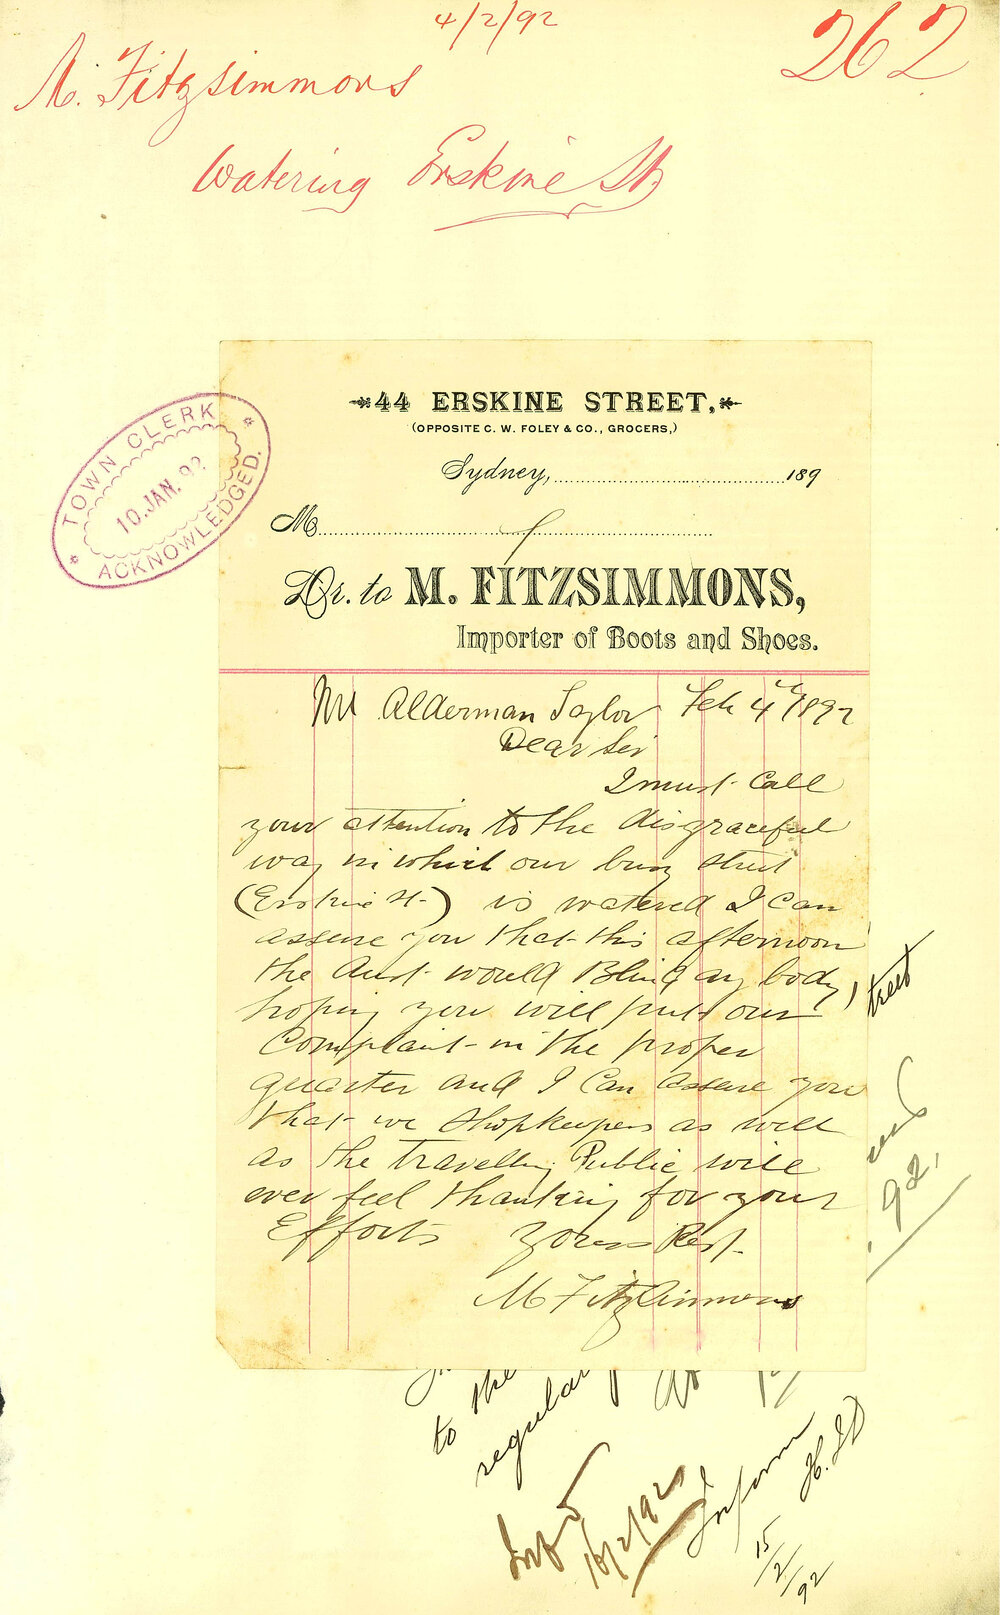 4/2/92
262
M. Fitzsimmons
Watering Erskine St.
44 ERSKINE STREET,
(OPPOSITE C. W. FOLEY & CO., GROCERS,)
Sydney, 189
M
Dr. to M. FITZSIMMONS,
Importer of Boots and Shoes.
TOWN CLERK
10. JAN. 92
ACKNOWLEDGED.
Mr Alderman Taylor Feb 4th 1892
Dear Sir
I must Call
your attention to the disgraceful
way in which our busy street
(Erskine St.) is watered I Can
assure you that this afternoon
the dust would Blind any body,
hoping you will putt our
Complaint in the proper
quarter and I Can assure you
that we shopkeepers as well
as the travelling Public will
ever feel thanking for your
Efforts Yours Rest.
M Fitzsimmons
treet
92,
to the
regular
16/2/92
Inform
H.
15/2/92